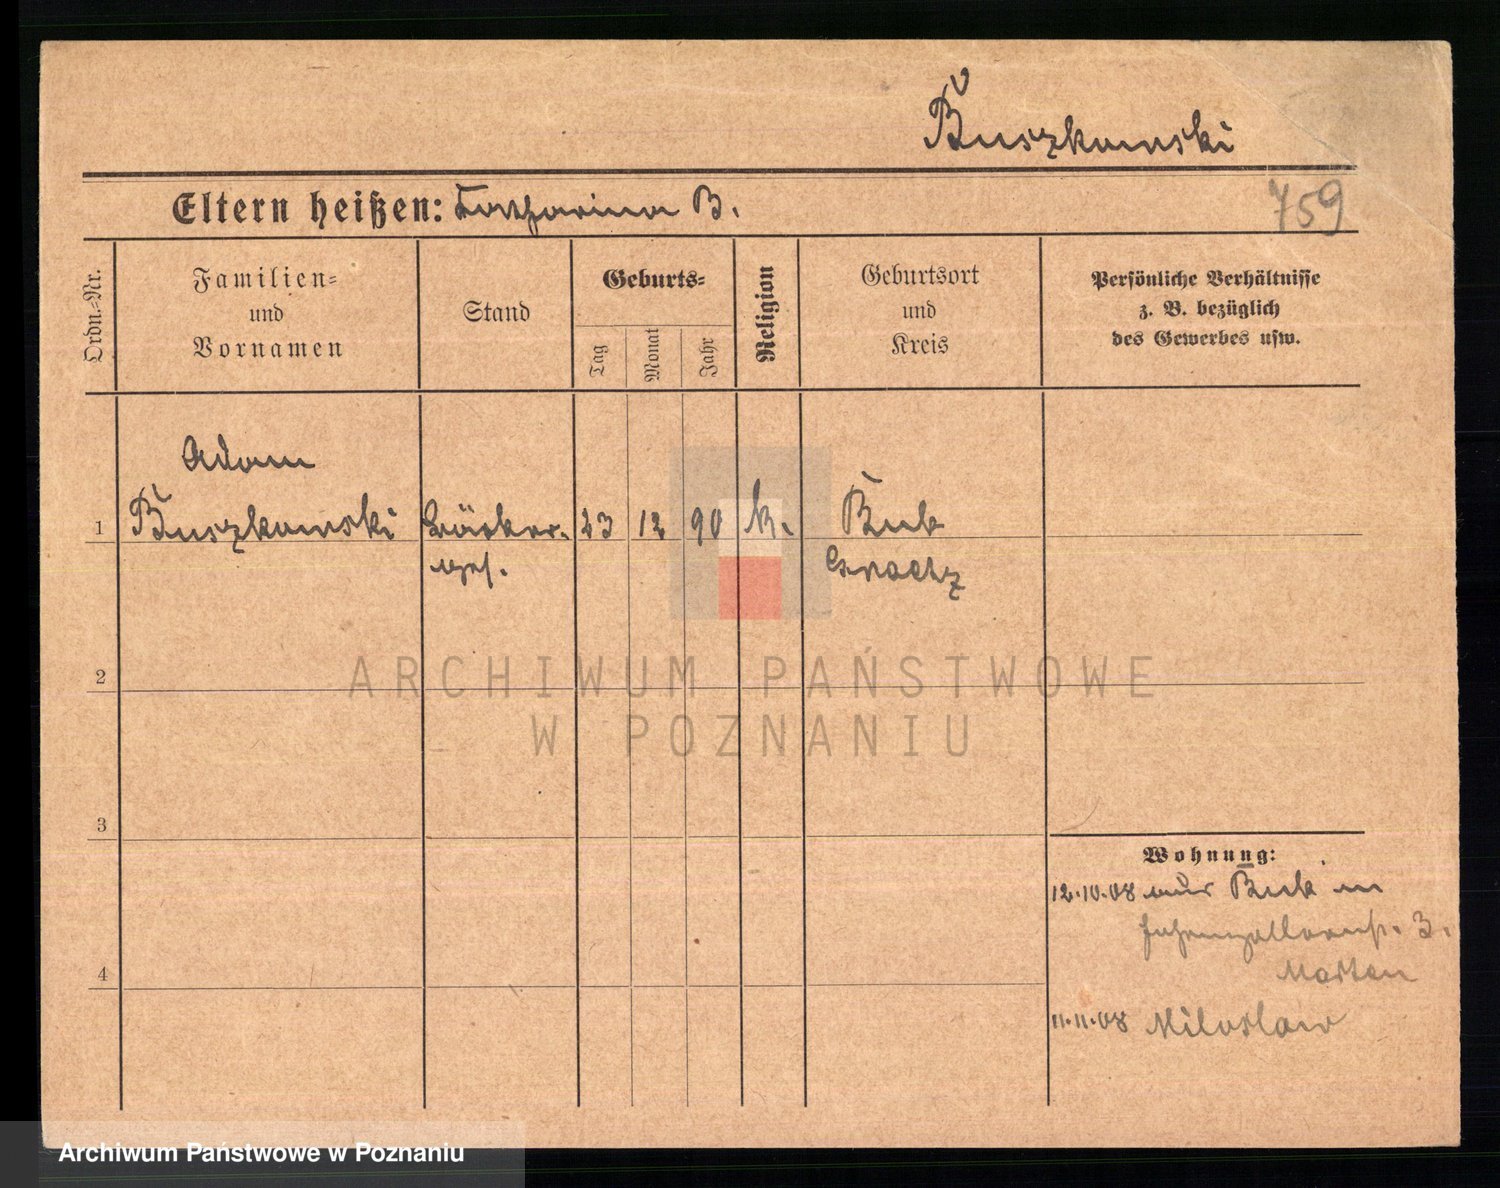 Buszkowski
Eltern heißen: Katharina B.
759
Ordn.-Nr.
Familien-
und
Vornamen
Stand
Geburts-
Tag
Monat
Jahr
Religion
Geburtsort
und
Kreis
Persönliche Verhältnisse
z. B. bezüglich
des Gewerbes usw.
Adam
1 Buszkowski Bäcker- 23 12 90 k. Buk
ges. Graetz
2
ARCHIWUM PAŃSTWOWE
W POZNANIU
3
Wohnung:
12.10.08 aus Buk in
3.
4
11.11.08 Miloslaw
Archiwum Państwowe w Poznaniu